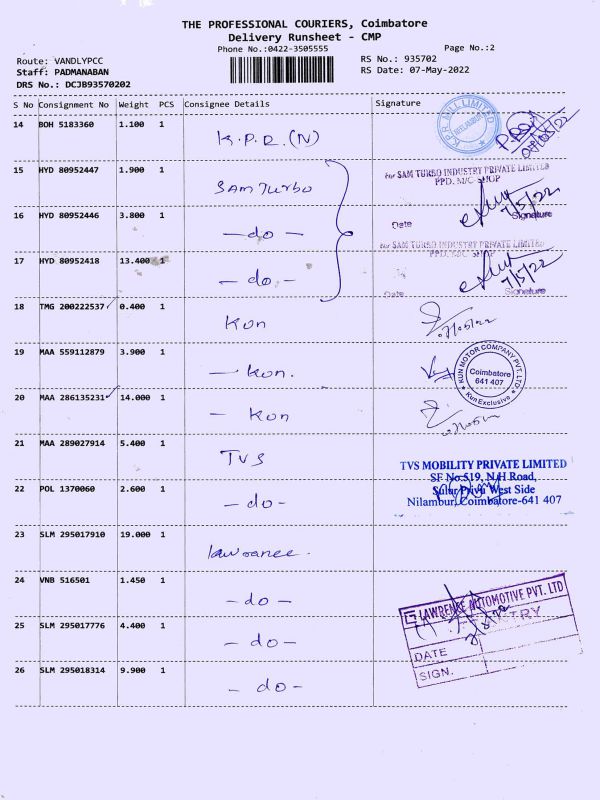 THE PROFESSIONAL COURIERS, Coimbatore
Delivery Runsheet - CMP
Phone No.:0422-3505555
Page No.:2
Route: VANDLYPCC
RS No.: 935702
Staff: PADMANABAN
RS Date: 07-May-2022
DRS No.: DCJB93570202
S No Consignment No Weight PCS Consignee Details Signature
14 BOH 5183360 1.100 1 K.P.R. (N)
K.P.R. MILL LIMITED
15 HYD 80952447 1.900 1 SAM Turbo
for SAM TURBO INDUSTRY PRIVATE LIMITED
PPD. M/C SHOP
7/5/22
Date Signature
16 HYD 80952446 3.800 1 - do -
17 HYD 80952418 13.400 1 - do -
for SAM TURBO INDUSTRY PRIVATE LIMITED
PPD. M/C SHOP
7/5/22
Date Signature
18 TMG 200222537 0.400 1 Kun
19 MAA 559112879 3.900 1 - Kun.
KUN MOTOR COMPANY PVT. LTD
Coimbatore
641 407
Kun Exclusive
20 MAA 286135231 14.000 1 - Kun
21 MAA 289027914 5.400 1 TVS
TVS MOBILITY PRIVATE LIMITED
SF No:519, N.H Road,
Sulur Privu West Side
Nilambur, Coimbatore-641 407
22 POL 1370060 2.600 1 - do -
23 SLM 295017910 19.000 1 Lawrance.
24 VNB 516501 1.450 1 - do -
LAWRENCE AUTOMOTIVE PVT. LTD
ENTRY
DATE
SIGN.
25 SLM 295017776 4.400 1 - do -
26 SLM 295018314 9.900 1 - do -